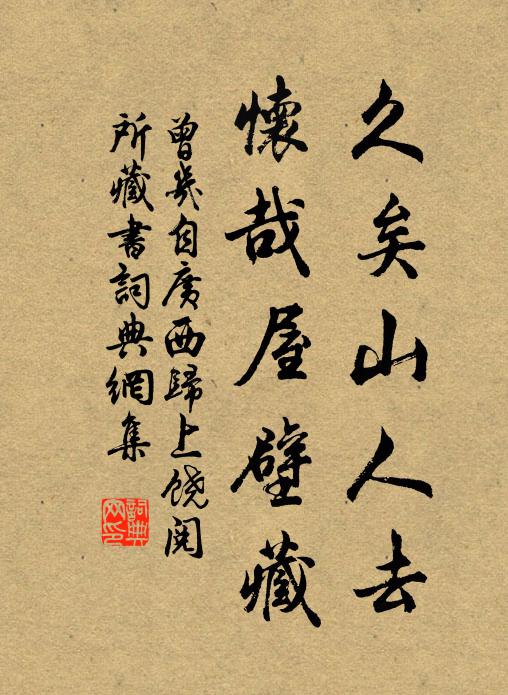 久矣山人去
懷哉屋壁藏
曾幾自廣西歸上饒閱
所藏書詞典網集
詞典網印